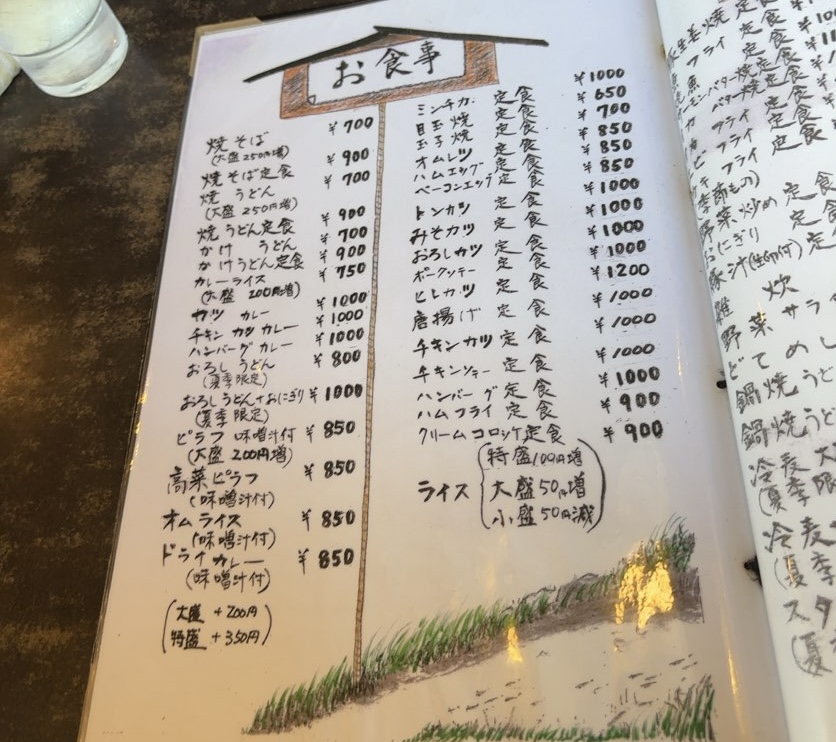 お食事
焼そば ¥700
(大盛250円増)
焼そば定食 ¥900
焼うどん ¥700
(大盛250円増)
焼うどん定食 ¥900
かけうどん ¥700
かけうどん定食 ¥900
カレーライス ¥750
(大盛200円増)
カツカレー ¥1000
チキンカツカレー ¥1000
ハンバーグカレー ¥1000
おろしうどん ¥800
(夏季限定)
おろしうどん+おにぎり ¥1000
(夏季限定)
ピラフ 味噌汁付 ¥850
(大盛200円増)
高菜ピラフ ¥850
(味噌汁付)
オムライス ¥850
(味噌汁付)
ドライカレー ¥850
(味噌汁付)
(大盛+200円
特盛+350円)
ミンチカツ定食 ¥1000
目玉焼定食 ¥650
玉子焼定食 ¥700
オムレツ定食 ¥850
ハムエッグ定食 ¥850
ベーコンエッグ定食 ¥850
トンカツ定食 ¥1000
みそカツ定食 ¥1000
おろしカツ定食 ¥1000
ポークソテー定食 ¥1000
ヒレカツ定食 ¥1200
唐揚げ定食 ¥1000
チキンカツ定食 ¥1000
チキンソテー定食 ¥1000
ハンバーグ定食 ¥1000
ハムフライ定食 ¥900
クリームコロッケ定食 ¥900
ライス (特盛100円増
大盛50円増
小盛50円減)
生姜焼定食
フライ定食
バター焼定食
フライ定食
フライ定食
野菜炒め定食
おにぎり定食
豚汁(生卵付)定
雑炊
野菜サラ
どてめし
鍋焼うど
鍋焼うど
冷麦大
(夏季限
冷麦
(夏季
スタ
(夏